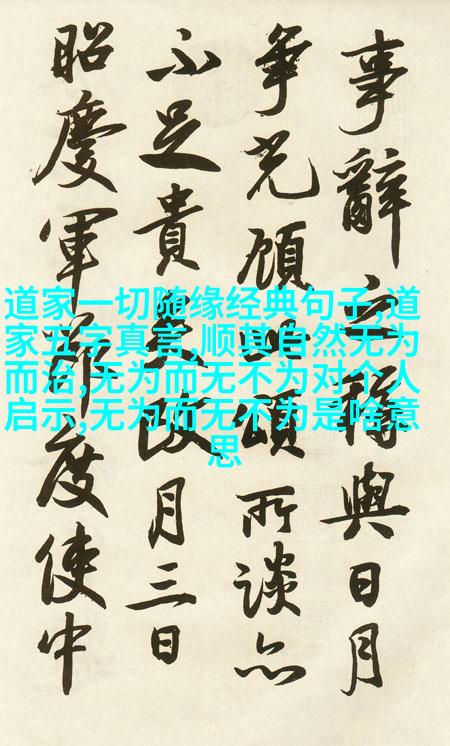 道家一切随缘经典句子,道
家五字真言,顺其自然无为
而治,无为而无不为对个人
启示,无为而无不为是啥意
思
事辭之與日月
爭光顧此頌所談亦
不足貴矣月三日
昭慶軍節度使中